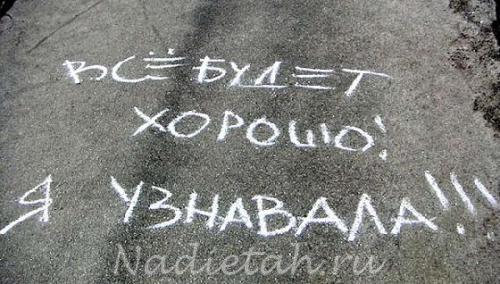 ВСЁ БУДЕТ
ХОРОШО!
Я УЗНАВАЛА!!!
Nadietah.ru